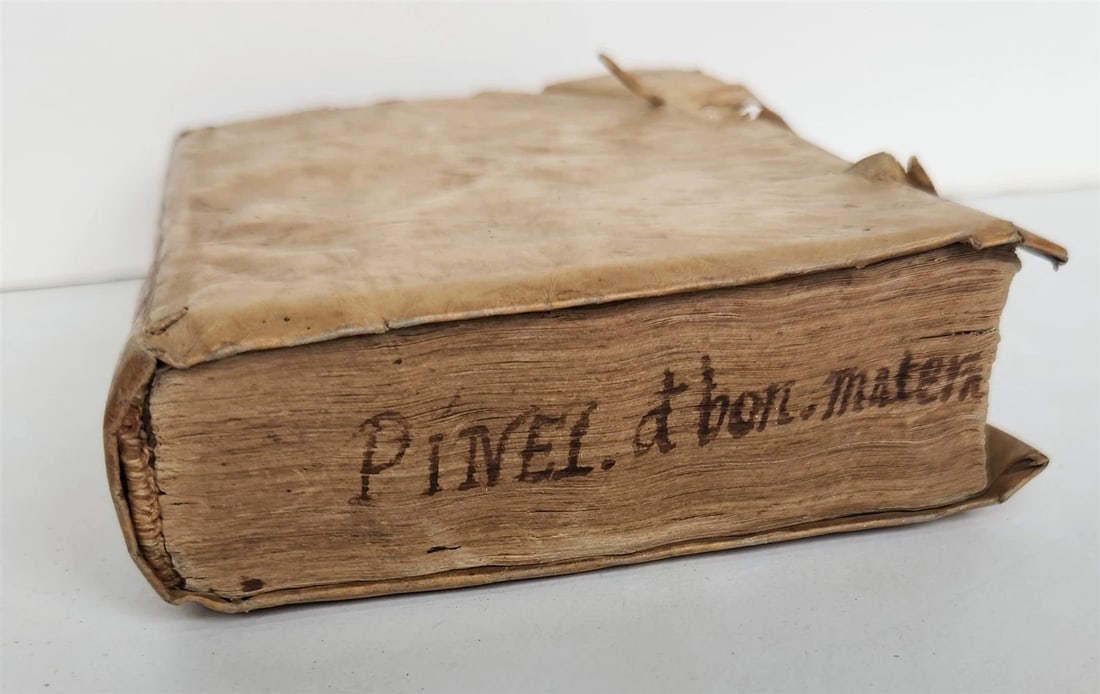 PINEL. đ bon. matern